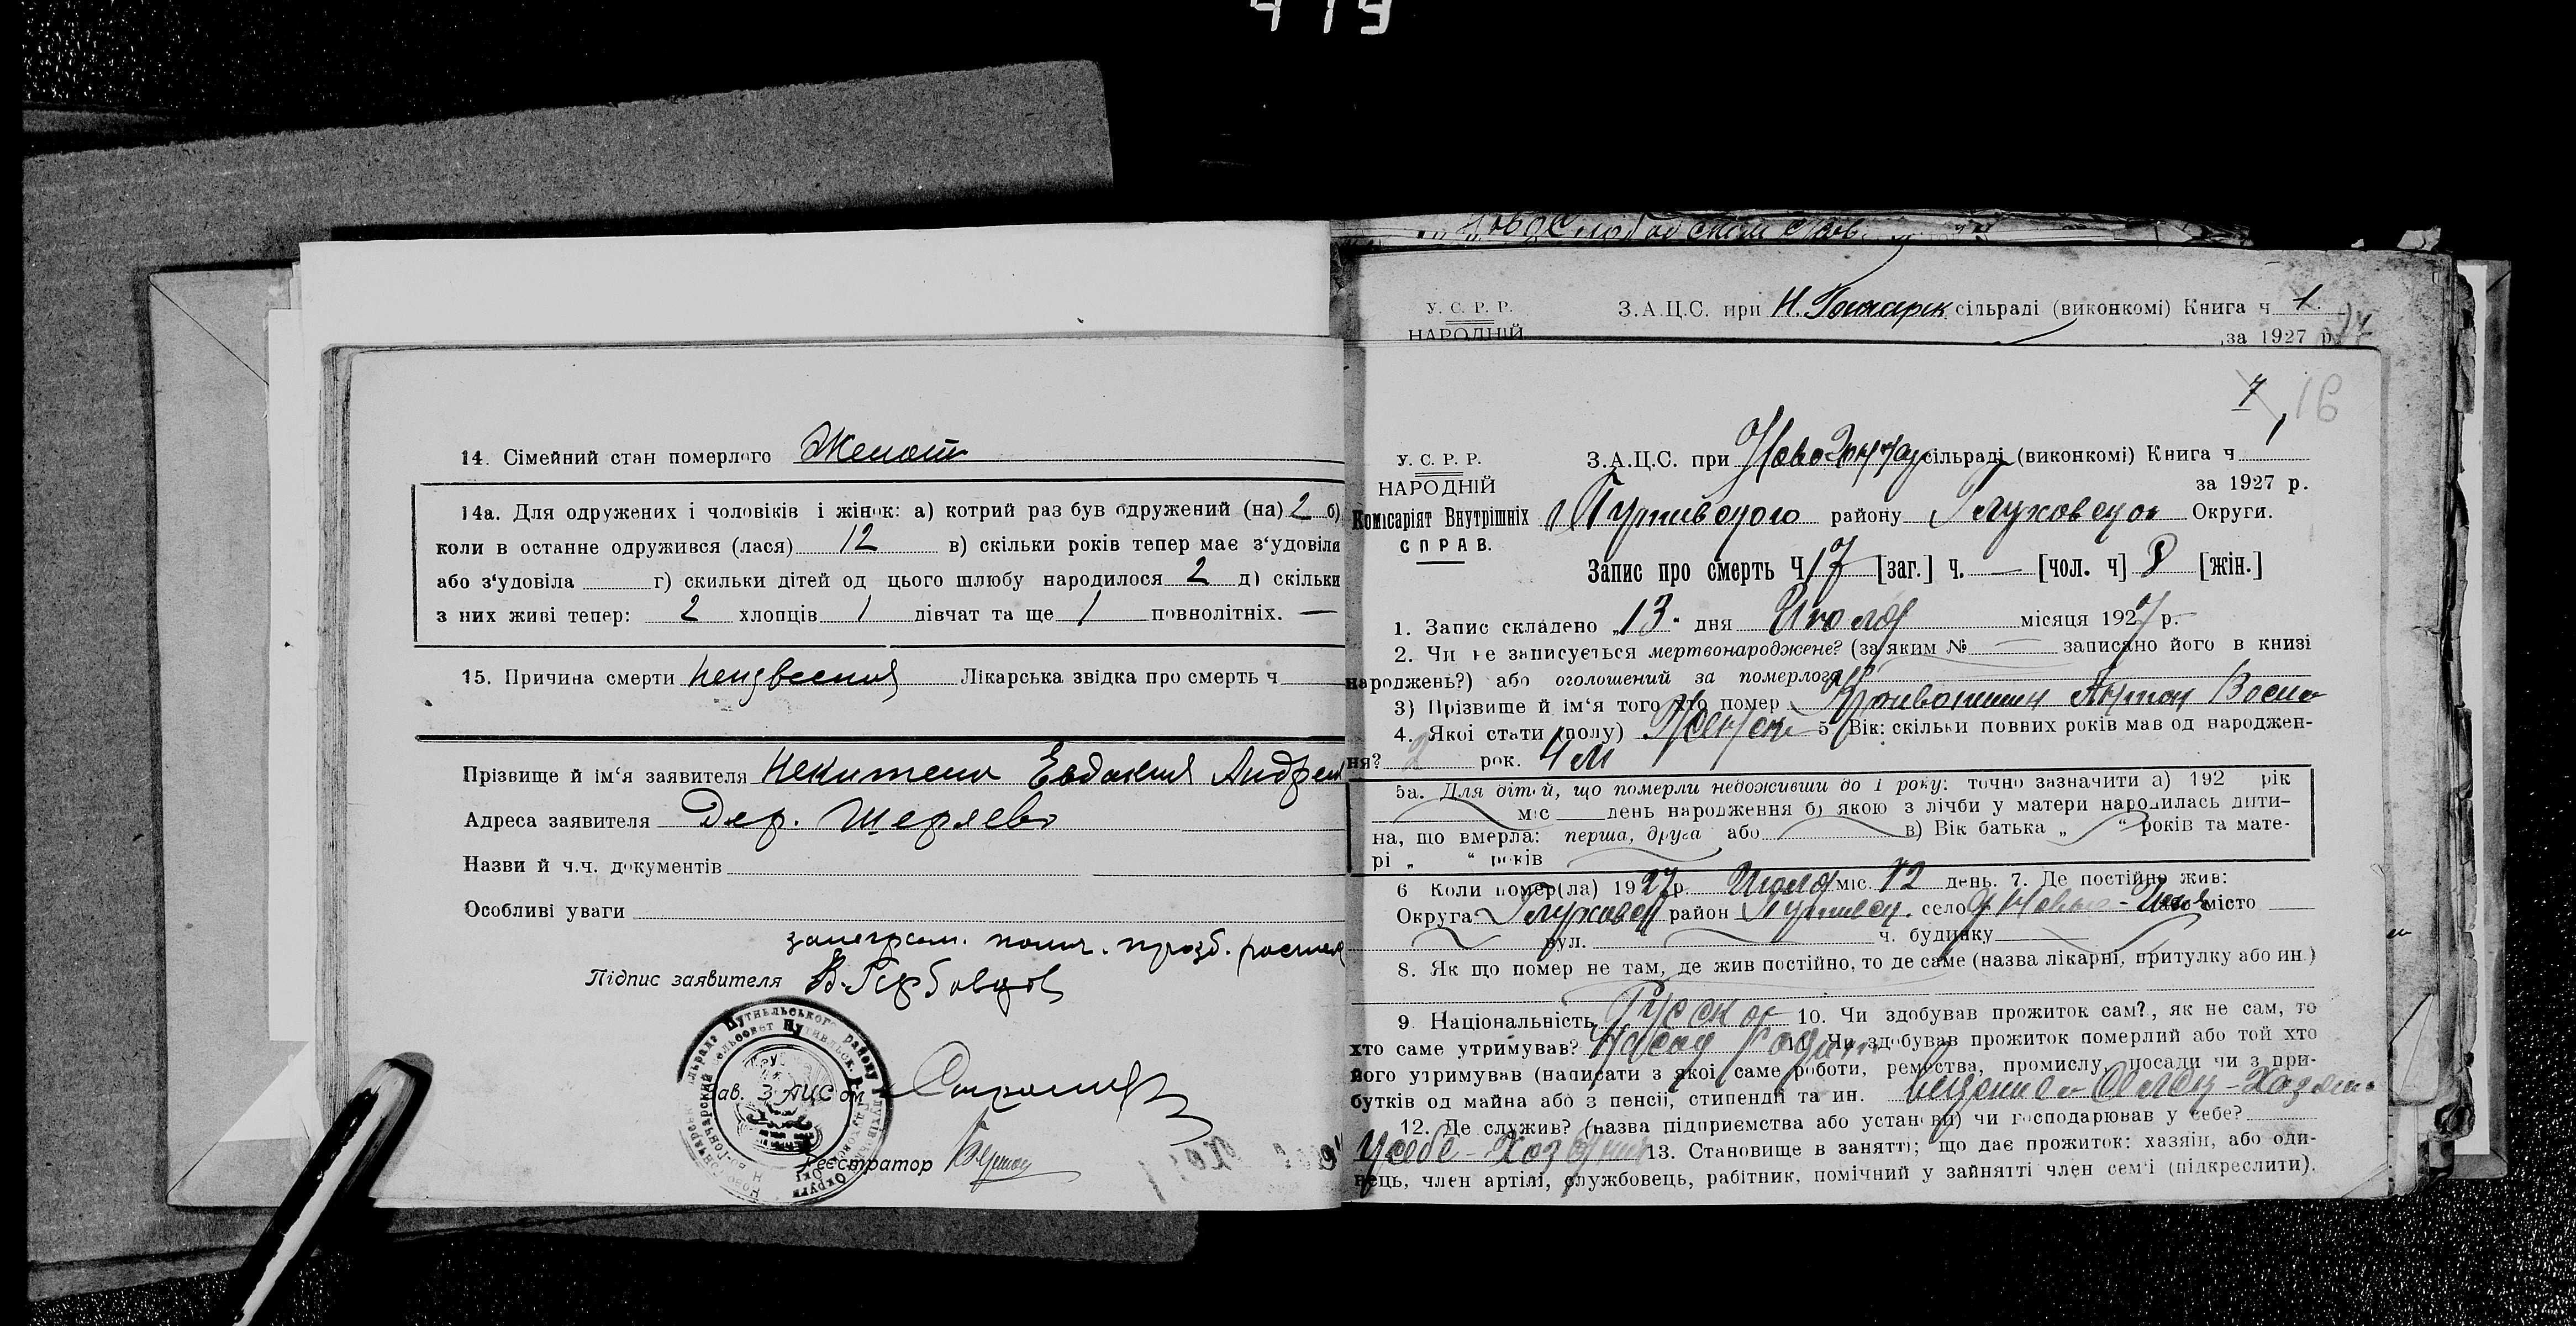 419
У. С. Р. Р. З.А.Ц.С. при Н. Гончарск сільраді (виконкомі) Книга ч 1.
НАРОДНІЙ за 1927 р.
14. Сімейний стан померлого Женат
14а. Для одружених і чоловіків і жінок: а) котрий раз був одружений (на) 2 б)
коли в останнє одружився (лася) 12 в) скільки років тепер має з‘удовіли
або з‘удовіла г) скильки дітей од цього шлюбу народилося 2 д) скільки
з них живі тепер: 2 хлопців 1 дівчат та ще 1 повнолітніх. —
15. Причина смерти Лікарська звідка про смерть ч
Прізвище й ім‘я заявителя Евдокия Андрея
Адреса заявителя Дер. Шеряево
Назви й ч.ч. документів
Особливі уваги
Підпис заявителя
Зав. З АЦС ом
Реєстратор
7 16
У. С. Р. Р. З.А.Ц.С. при сільраді (виконкомі) Книга ч 1
НАРОДНІЙ за 1927 р.
Комісаріят Внутрішніх Путивского району Глуховскои Округи.
СПРАВ.
Запис про смерть Ч 17 [заг.] ч. — [чол. ч] 8 [жін.]
1. Запис складено „13“ дня Июля місяця 1927 р.
2. Чи не записується мертвонароджене? (за яким № — записано його в книзі
народжень?) або оголошений за померлого
3) Прізвище й ім‘я того хто померт
4. Якої стати (полу) Женск 5. Вік: скільки повних років мав од народжен-
ня? 2 рок. 4 м
5а. Для дітей, що померли недоживши до 1 року: точно зазначити а) 192 рік
міс день народження б) якою з лічби у матери народилась дити-
на, що вмерла: перша, друга або в) Вік батька „ “ років та мате-
рі „ “ років
6 Коли помер(ла) 1927 р. Июля міс. 12 день. 7. Де постійно жив:
Округа Глуховск район Путивск. село місто
вул. ч. будинку
8. Як що помер не там, де жив постійно, то де саме (назва лікарні, притулку або ин.)
9. Національність Руская 10. Чи здобував прожиток сам?, як не сам, то
хто саме утримував? 11. Чи здобував прожиток померлий або той хто
його утримував (написати з якої саме роботи, ремества, промислу, посади чи з при-
бутків од майна або з пенсії, стипендії та ин.
12. Де служив? (назва підприємства або установи) чи господарював у себе?
У себе 13. Становище в занятті; що дає прожиток: хазяїн, або оди-
нець, член артілі, службовець, рабітник, помічний у зайнятті член сем‘ї (підкреслити).